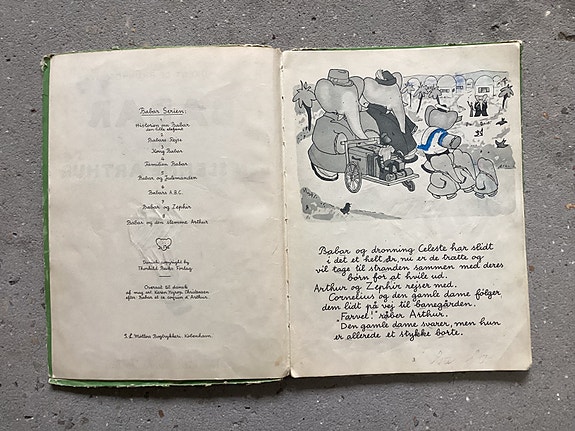 Babar Serien:
1
Historien om Babar
den lille elefant
2
Babars Rejse
3
Kong Babar
4
Familien Babar
5
Babar og Julemanden
6
Babars A.B.C.
7
Babar og Zephir
8
Babar og den slemme Arthur
Dansk copyright by
Thorkild Becks Forlag
Oversat til dansk
af mag. art. Karen Nyrop Christensen
efter: Babar et ce coquin d'Arthur.
S. L. Møllers Bogtrykkeri, København.
Babar og dronning Celeste har slidt
i det et helt år, nu er de trætte og
vil tage til stranden sammen med deres
børn for at hvile ud.
Arthur og Zephir rejser med.
Cornelius og den gamle dame følger
dem lidt på vej til banegården.
"Farvel!" råber Arthur.
Den gamle dame svarer, men hun
er allerede et stykke borte.